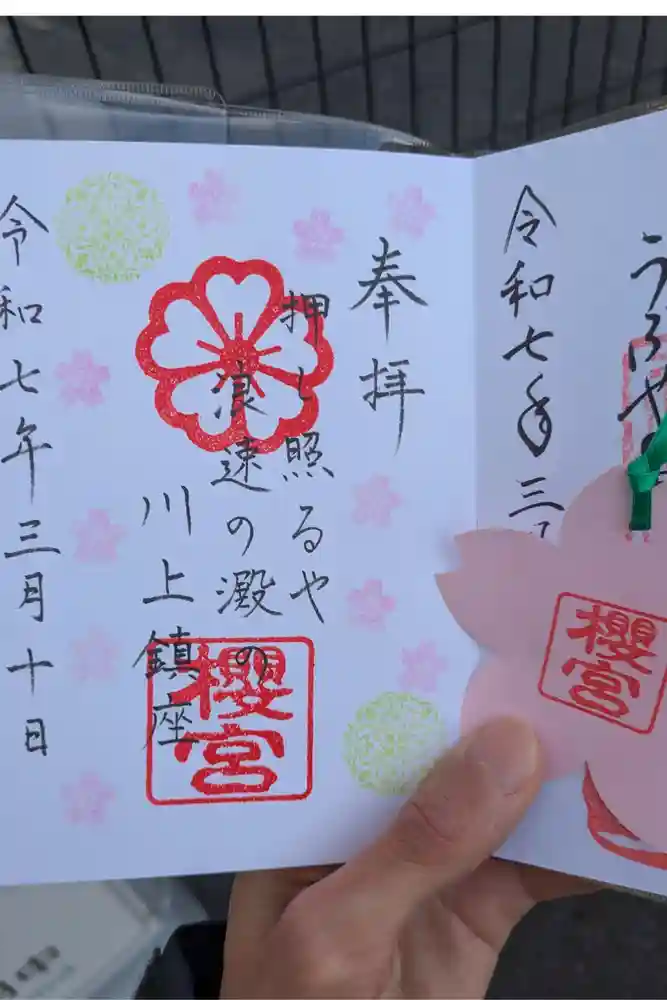 令和七年三
櫻宮
奉拝
押し照るや
浪速の澱の
川上鎮座
櫻宮
令和七年三月十日